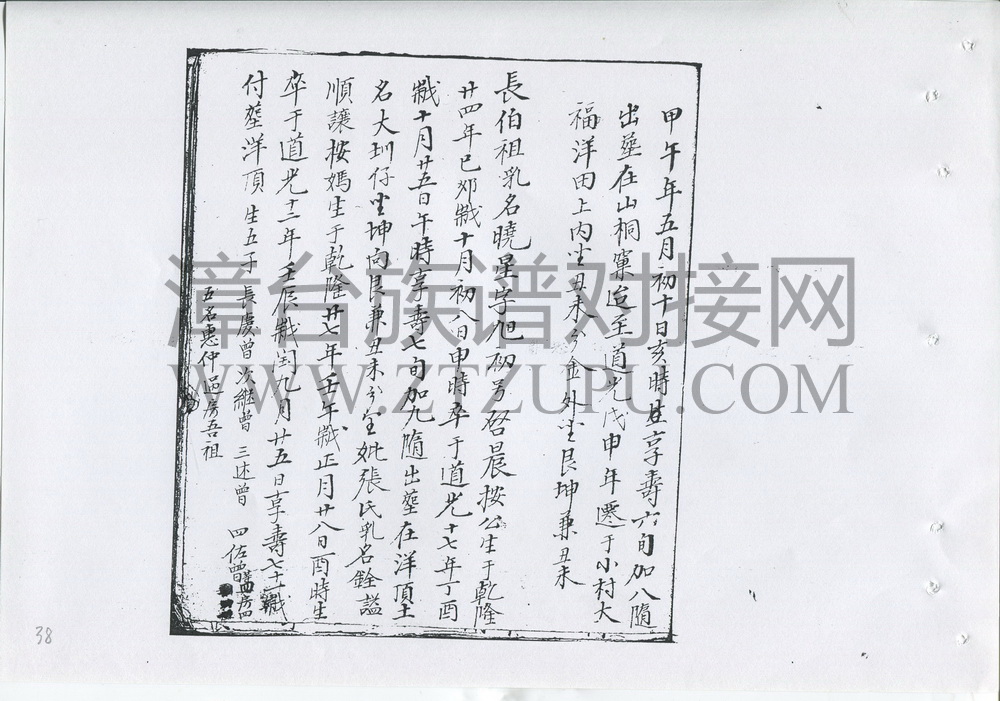 甲午年五月初十日亥時生享壽六旬加八隨
出塟在山桐窠迨至道光戊申年遷于小村大
福洋田上內坐丑未分金外坐艮坤兼丑未
長伯祖乳名曉星字旭初号啓晨按公生于乾隆
廿四年己夘嵗十月初八日申時卒于道光十七年丁酉
嵗十月廿五日午時享壽七旬加九隨出塟在洋頂土
名大圳仔坐坤向艮兼丑未分金妣張氏乳名銓謚
順讓按媽生于乾隆廿七年壬午嵗正月廿八日酉時生
卒于道光十二年壬辰嵗閏九月廿五日享壽七十一嵗
付塟洋頂生五子 長慶曾 次繼曾 三述曾 四佐曾
五名惠仲過房吾祖
漳台族谱对接网
WWW.ZTZUPU.COM
38